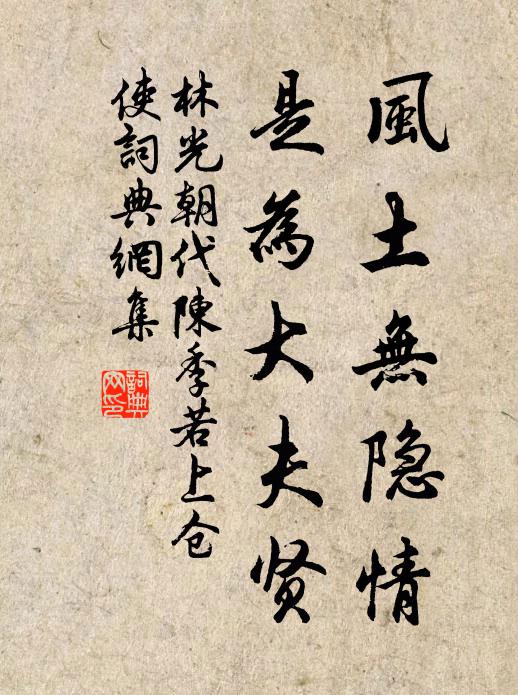 風土無隐情
是為大夫贤
林光朝代陳季若上仓
使詞典網集
詞典
网印